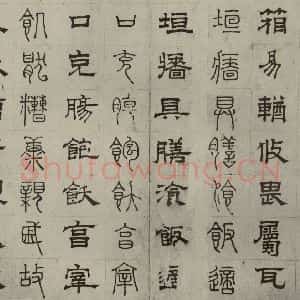 箱易輶攸畏屬耳
垣牆具膳飡飯適
垣牆具膳飡飯適
口充腸飽飫亯宰
口充腸飽飫亯宰
飢猒糟康親戚故
Shufawang.CN